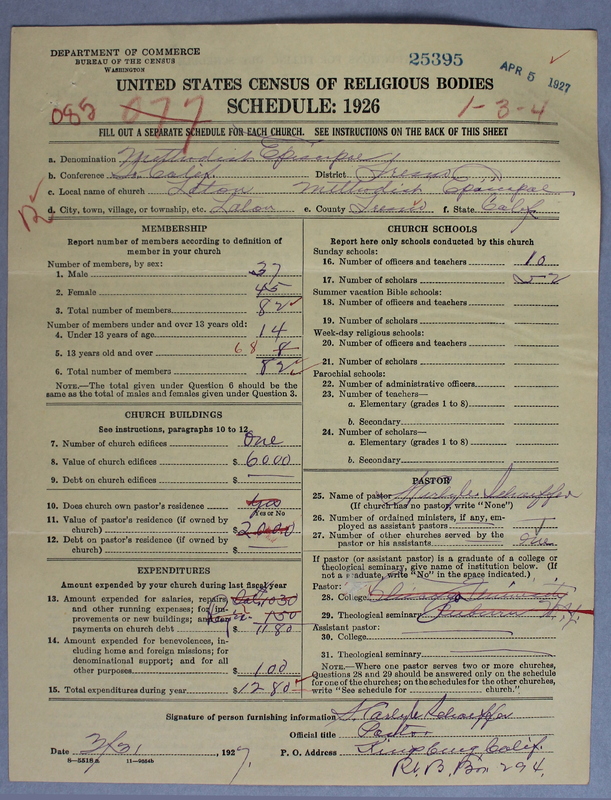 DEPARTMENT OF COMMERCE
BUREAU OF THE CENSUS
WASHINGTON
25395
APR 5 1927
UNITED STATES CENSUS OF RELIGIOUS BODIES
SCHEDULE: 1926
082 077
1-3-4
FILL OUT A SEPARATE SCHEDULE FOR EACH CHURCH. SEE INSTRUCTIONS ON THE BACK OF THIS SHEET
a. Denomination Methodist Episcopal
b. Conference So. Calif. District Fresno
c. Local name of church Laton Methodist Episcopal
d. City, town, village, or township, etc. Laton e. County Fresno f. State Calif.
12
MEMBERSHIP
Report number of members according to definition of member in your church
Number of members, by sex:
1. Male 37
2. Female 45
3. Total number of members 82
Number of members under and over 13 years old:
4. Under 13 years of age 14
5. 13 years old and over 68 8
6. Total number of members 82
NOTE.—The total given under Question 6 should be the same as the total of males and females given under Question 3.
CHURCH BUILDINGS
See instructions, paragraphs 10 to 12
7. Number of church edifices One
8. Value of church edifices $ 6000
9. Debt on church edifices $
10. Does church own pastor's residence Yes
Yes or No
11. Value of pastor's residence (if owned by church) $ 2000
12. Debt on pastor's residence (if owned by church) $
EXPENDITURES
Amount expended by your church during last fiscal year
13. Amount expended for salaries, repairs, and other running expenses; for improvements or new buildings; and for payments on church debt Sal. 1030
150
$ 1180
14. Amount expended for benevolences, including home and foreign missions; for denominational support; and for all other purposes $ 100
15. Total expenditures during year $ 1280
CHURCH SCHOOLS
Report here only schools conducted by this church
Sunday schools:
16. Number of officers and teachers 10
17. Number of scholars 52
Summer vacation Bible schools:
18. Number of officers and teachers
19. Number of scholars
Week-day religious schools:
20. Number of officers and teachers
21. Number of scholars
Parochial schools:
22. Number of administrative officers
23. Number of teachers—
a. Elementary (grades 1 to 8)
b. Secondary
24. Number of scholars—
a. Elementary (grades 1 to 8)
b. Secondary
PASTOR
25. Name of pastor H. Carlyle Schaeffer
(If church has no pastor, write "None")
26. Number of ordained ministers, if any, employed as assistant pastors
27. Number of other churches served by the pastor or his assistants
If pastor (or assistant pastor) is a graduate of a college or theological seminary, give name of institution below. (If not a graduate, write "No" in the space indicated.)
Pastor:
28. College University
29. Theological seminary Auburn N.Y.
Assistant pastor:
30. College
31. Theological seminary
NOTE.—Where one pastor serves two or more churches, Questions 28 and 29 should be answered only on the schedule for one of the churches; on the schedules for the other churches, write "See schedule for church."
Signature of person furnishing information H. Carlyle Schaeffer
Official title Pastor
Date 3/31, 1927. P. O. Address Kingsburg Calif.
Rt. B. Box 294.
8—5518 a 11—9564b